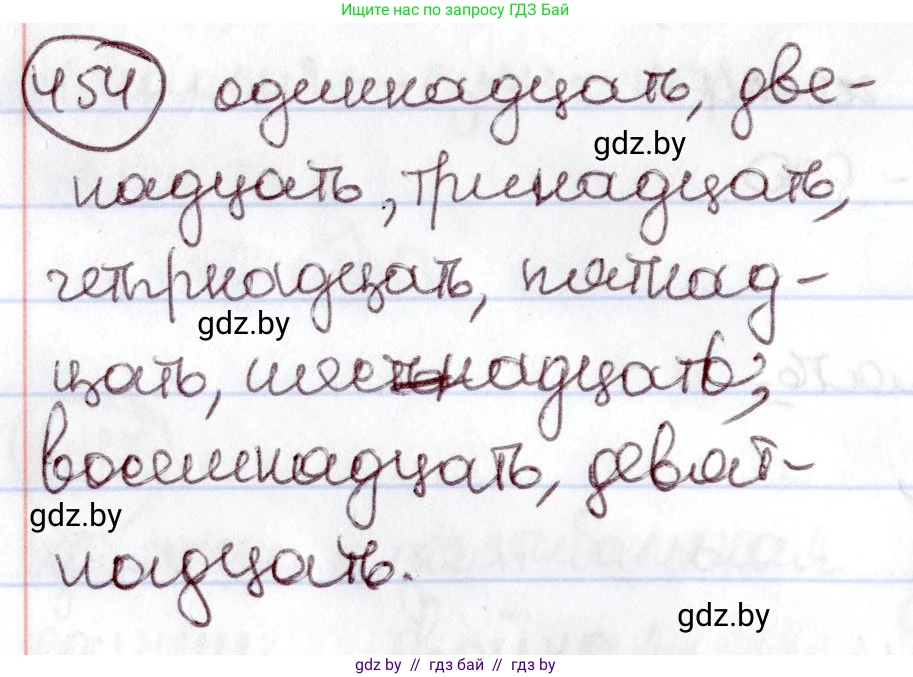 Ищите нас по запросу ГДЗ Бай
454 одиннадцать, две-
gdz.by
надцать, тринадцать,
четырнадцать, пятнад-
gdz.by
цать, шестнадцать,
восемнадцать, девят-
gdz.by
надцать.
gdz.by
gdz.by // гдз бай // гдз by